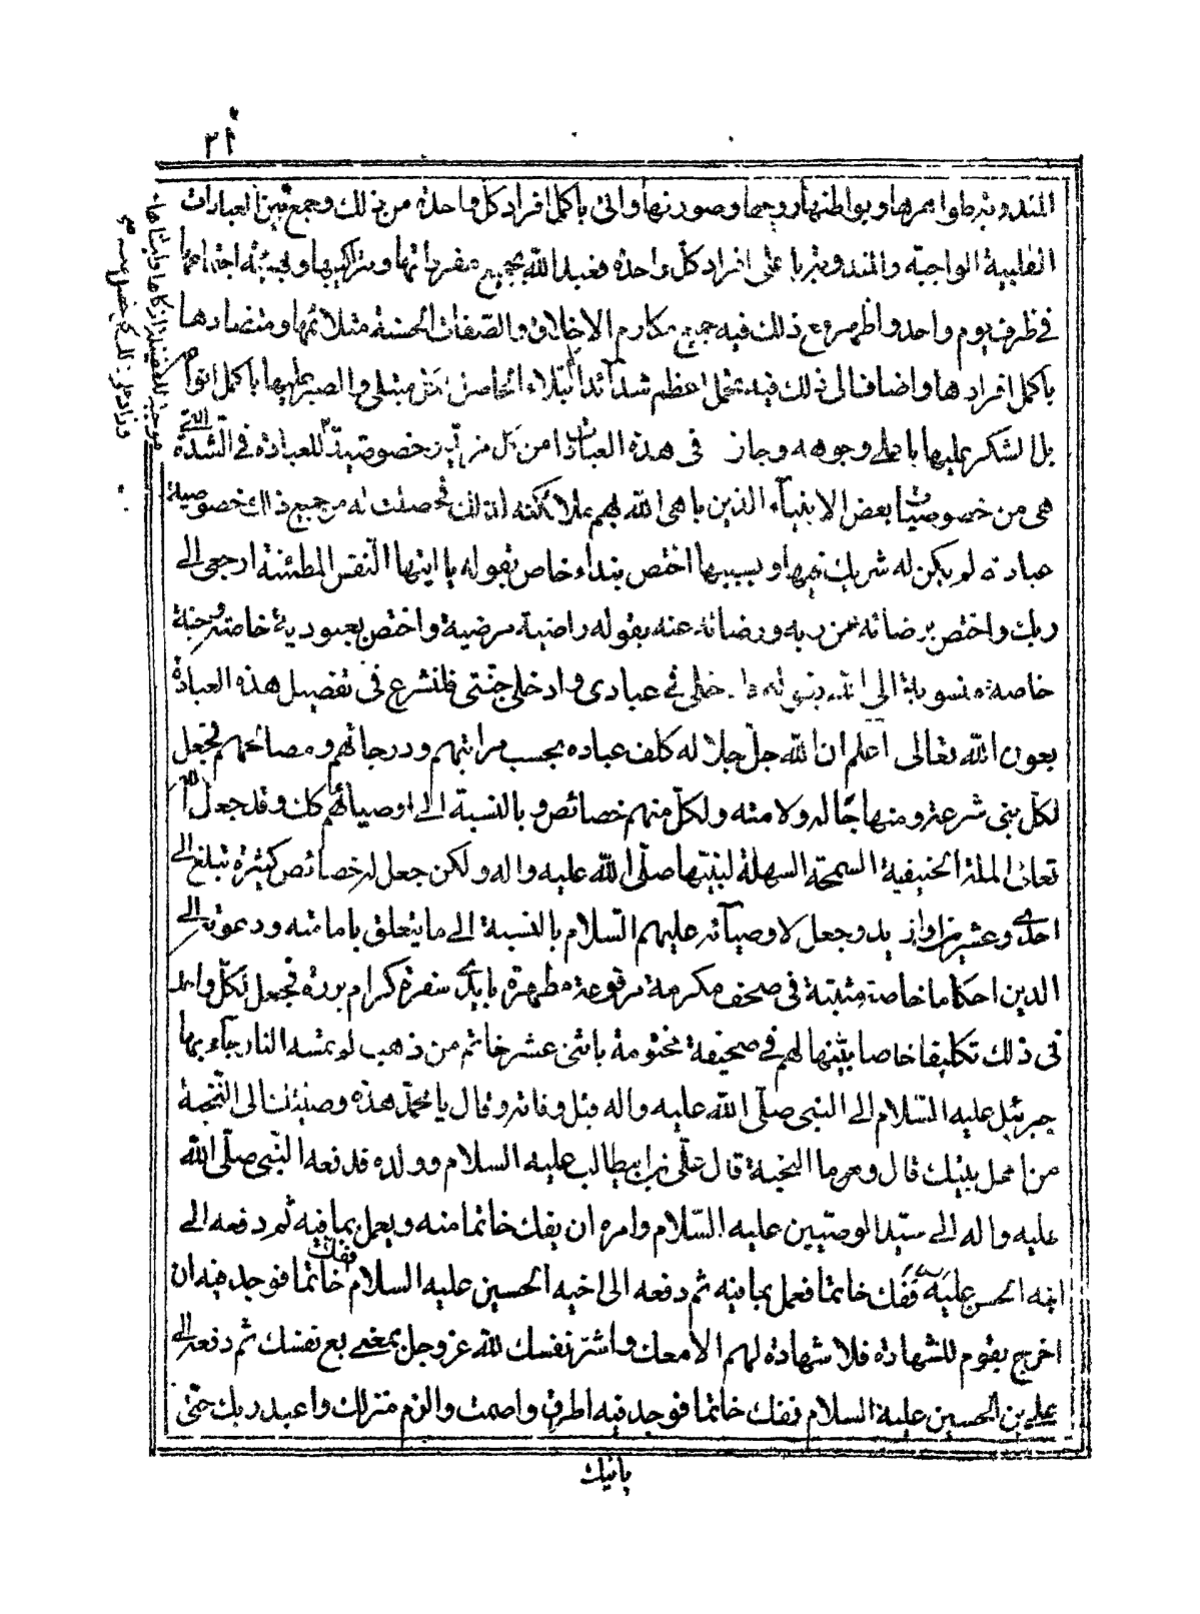 ٣١
المندوبة ظواهرها وبواطنها روحها وصورتها واتى باكمل افراد كل واحدة من ذلك وجمع بين العبادات
القلبية الواجبة والمندوبة باعلى افراد كل واحدة فعبد الله بجميع مفرداتها وتراكيبها وبهيئة اجتماعها
فى ظرف يوم واحد واظهر مع ذلك فيه جميع مكارم الاخلاق والصفات الحسنة متلائمها ومتضادها
باكمل افرادها واضاف الى ذلك فيه تحمل اعظم شدائد الابتلاء الحاصل لكل مبتلى والصبر عليها باكمل انواعه
بل الشكر عليها باعلى وجوهه وحاز فى هذه العبادات من كل مزية خصوصية للعبادة فى الشدة التى
هى من خصوصيات بعض الانبياء الذين باهى الله بهم ملائكته لذلك فحصلت له من جميع ذلك خصوصية
عبادة لم يكن له شريك فيها وبسببها اختص بنداء خاص بقوله يا ايتها النفس المطمئنة ارجعى الى
ربك واختص برضائه عن ربه ورضائه عنه بقوله راضية مرضية واختص بعبودية خاصة وجنة
خاصة منسوبة الى الله بقوله فادخلى فى عبادى وادخلى جنتى فلنشرع فى تفصيل هذه العبادة
بعون الله تعالى اعلم ان الله جل جلاله كلف عباده بحسب مراتبهم ودرجاتهم ومصالحهم فجعل
لكل نبى شرعة ومنهاجًا له ولامته ولكل منهم خصائص وبالنسبة الى اوصيائهم كك وقد جعل الله
تعالى الملة الحنيفية السمحة السهلة لنبيها صلى الله عليه واله ولكن جعل له خصائص كثيرة تبلغ الى
احدى وعشرين او ازيد وجعل لاوصيائه عليهم السلام بالنسبة الى ما يتعلق بامامته ودعوته الى
الدين احكاما خاصة مثبتة فى صحف مكرمة مرفوعة مطهرة بايدى سفرة كرام بررة فجعل لكل واحد
فى ذلك تكليفا خاصا بينها لهم فى صحيفة مختومة باثنى عشر خاتم من ذهب لم تمسه النار جاء بها
جبرئيل عليه السلام الى النبى صلى الله عليه واله قبل وفاته وقال يا محمد هذه وصيتك الى النجبة
من اهل بيتك قال وما النجبة قال على بن ابيطالب عليه السلام وولده فدفعه النبى صلى الله
عليه واله الى سيد الوصيين عليه السلام وامره ان يفك خاتما منه ويعمل بما فيه ثم دفعه الى
ابنه الحسن عليه ففك خاتما فعمل بما فيه ثم دفعه الى اخيه الحسين عليه السلام ففك خاتما فوجد فيه ان
اخرج بقوم للشهادة فلا شهادة لهم الا معك واشتر نفسك لله عز وجل بمعنى بع نفسك ثم دفعه الى
على بن الحسين عليه السلام ففك خاتما فوجد فيه اطرق واصمت والزم منزلك واعبد ربك حتى
ياتيك